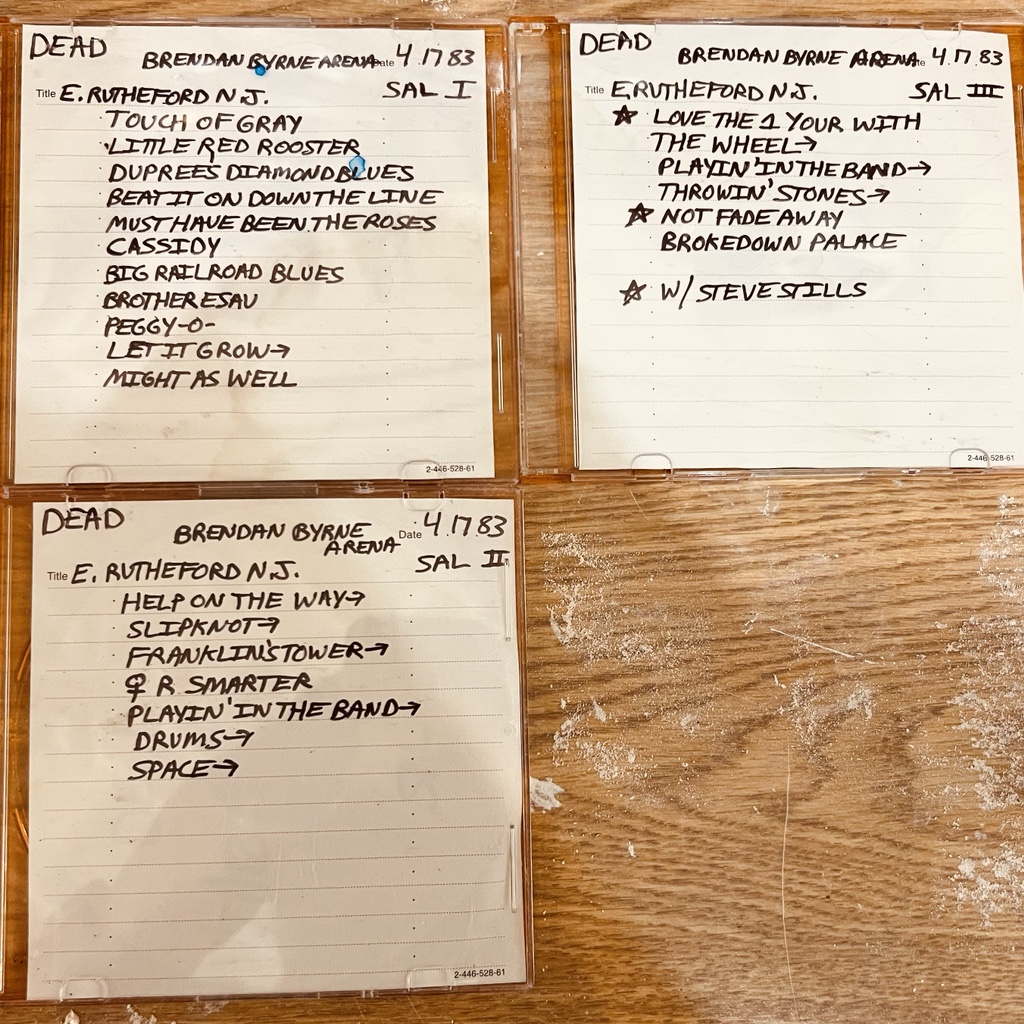 DEAD
BRENDAN BYRNE ARENA Date 4.17.83
Title E. RUTHEFORD N.J. SAL I
TOUCH OF GRAY
LITTLE RED ROOSTER
DUPREES DIAMOND BLUES
BEAT IT ON DOWN THE LINE
MUST HAVE BEEN THE ROSES
CASSIDY
BIG RAILROAD BLUES
BROTHER ESAU
PEGGY-O-
LET IT GROW→
MIGHT AS WELL
2-446-528-61
DEAD
BRENDAN BYRNE ARENA 4.17.83
Title E. RUTHEFORD N.J. SAL III
☆ LOVE THE 1 YOUR WITH
THE WHEEL→
PLAYIN' IN THE BAND→
THROWIN' STONES→
☆ NOT FADE AWAY
BROKEDOWN PALACE
☆ W/ STEVE STILLS
2-446-528-61
DEAD
BRENDAN BYRNE
ARENA Date 4.17.83
Title E. RUTHEFORD N.J. SAL II
HELP ON THE WAY→
SLIPKNOT→
FRANKLIN'S TOWER→
♀ R SMARTER
PLAYIN' IN THE BAND→
DRUMS→
SPACE→
2-446-528-61